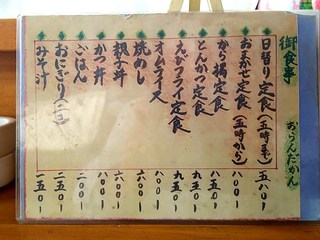 御食事 おらんだかん
日替り定食(五時まで) 五八〇-
おまかせ定食(五時から) 八〇〇-
から揚定食 八五〇-
とんかつ定食 九五〇-
えびフライ定食 九五〇-
オムライス 八〇〇-
焼めし 六〇〇-
親子丼 六〇〇-
かつ丼 八〇〇-
ごはん 二〇〇-
おにぎり(二コ) 二五〇-
みそ汁 一五〇-